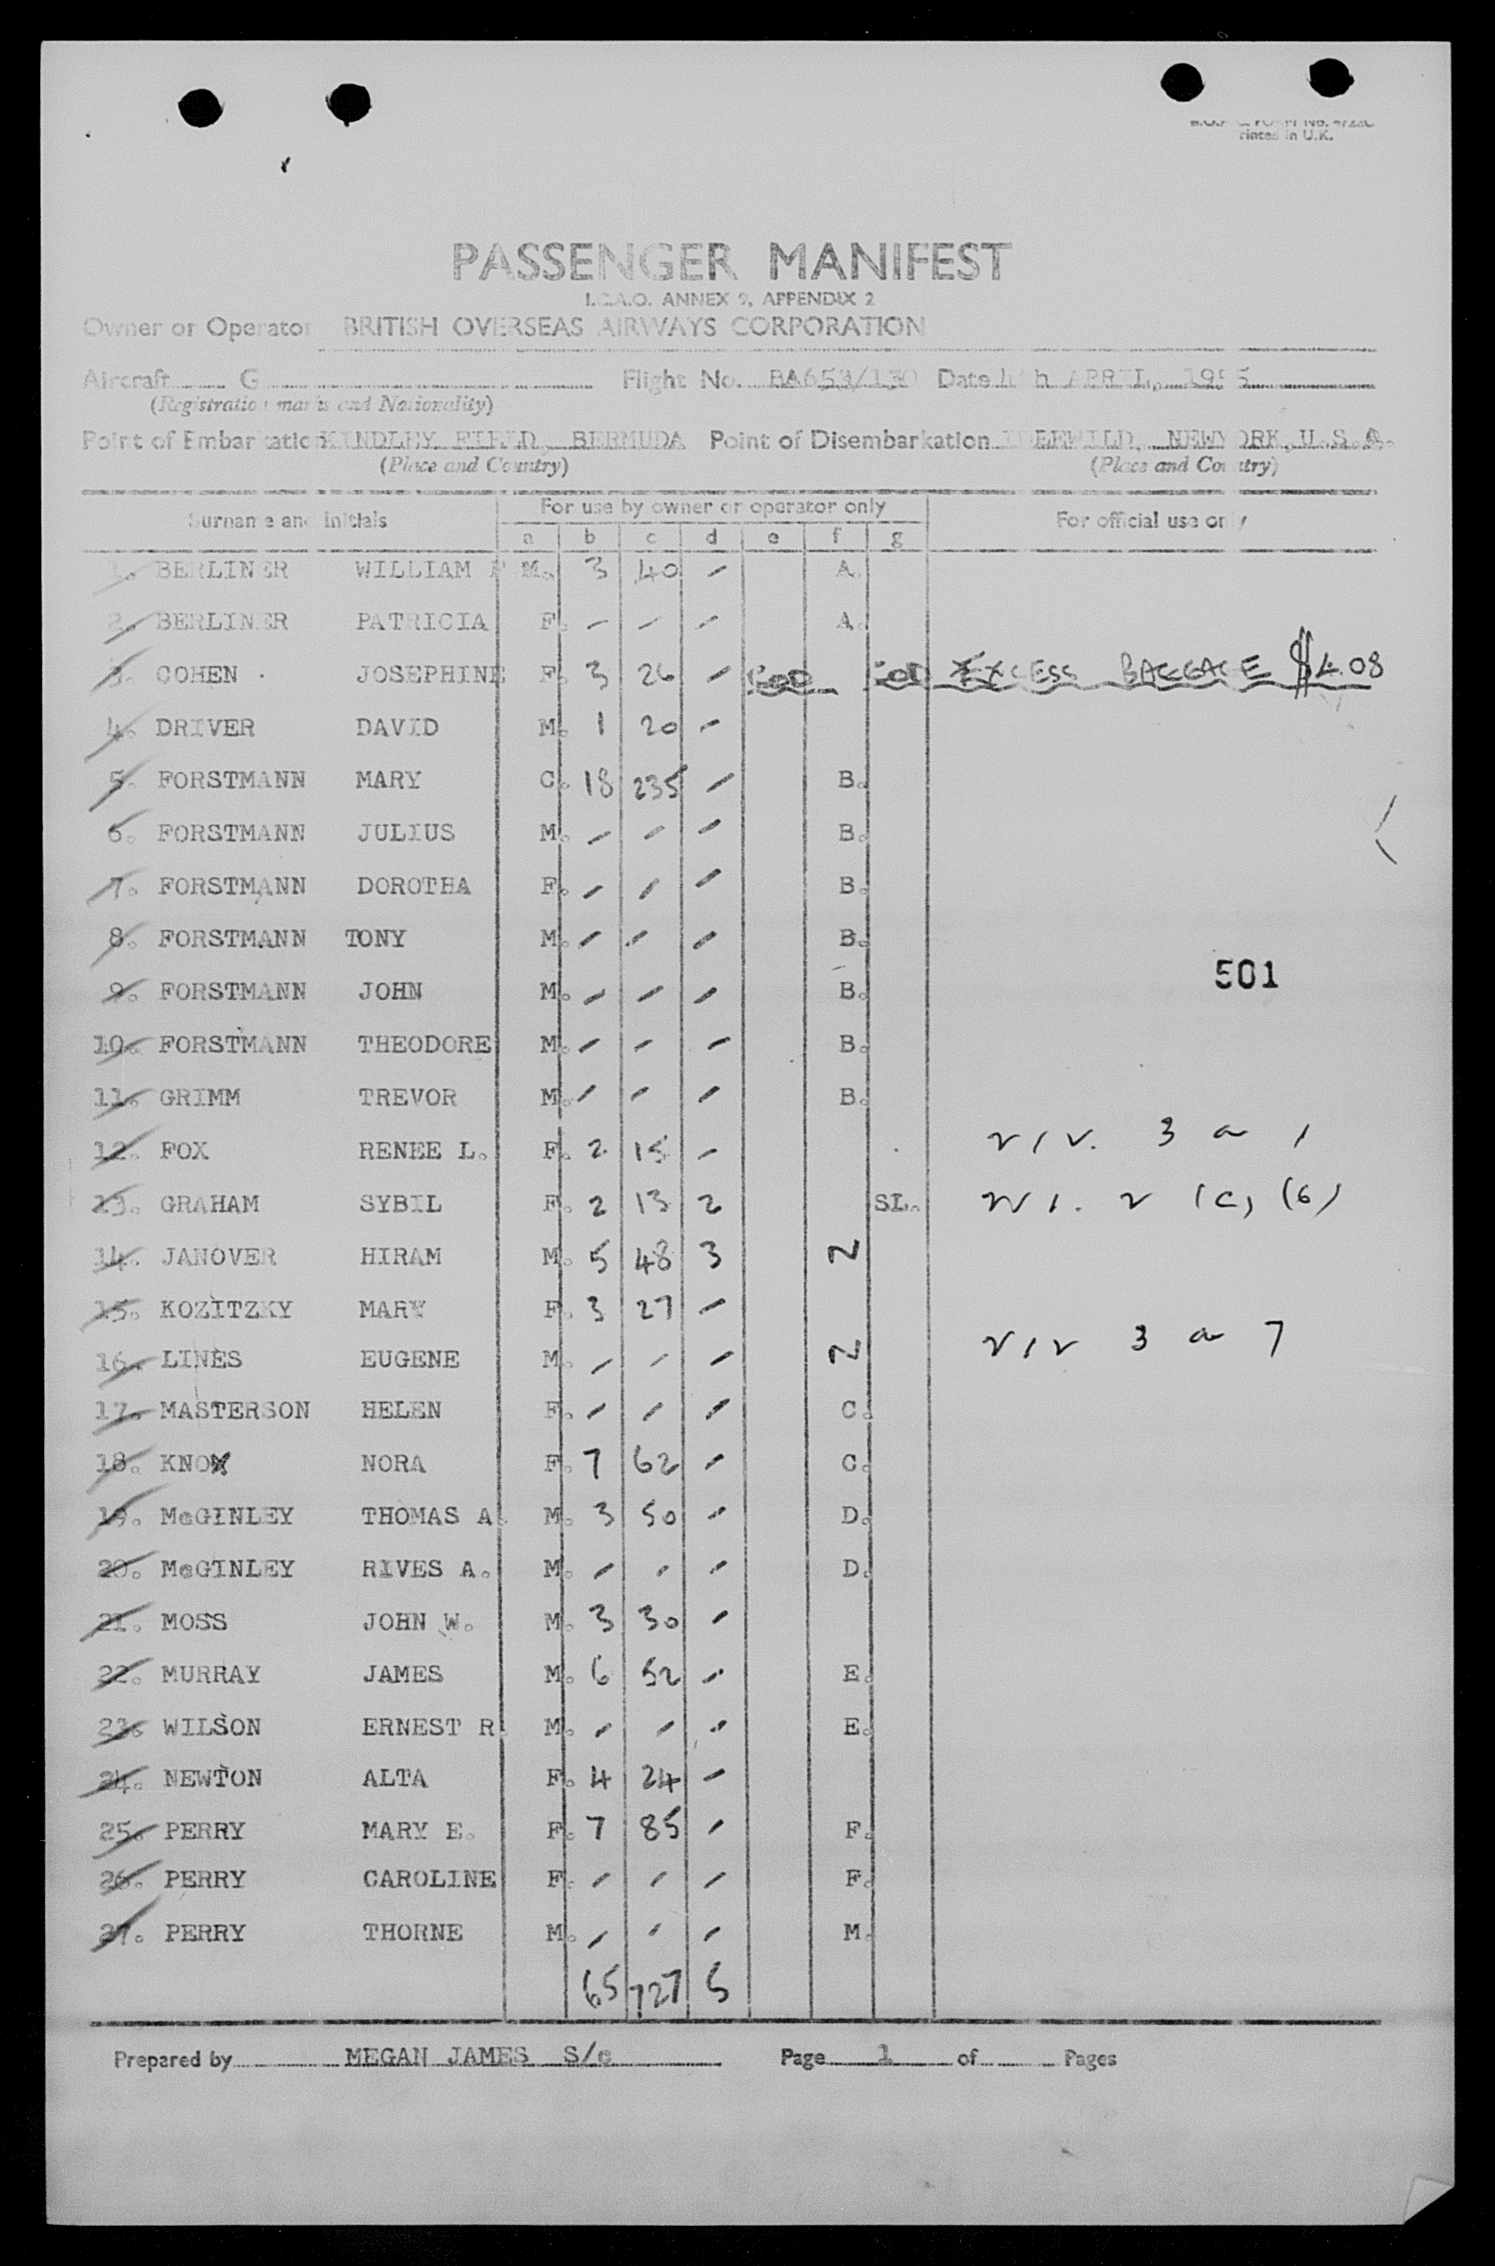 Printed in U.K.
PASSENGER MANIFEST
I.C.A.O. ANNEX 9, APPENDIX 2
Owner or Operator BRITISH OVERSEAS AIRWAYS CORPORATION
Aircraft G Flight No. BA653/130 Date APRIL, 1955
(Registration marks and Nationality)
Point of Embarkation KINDLEY FIELD, BERMUDA Point of Disembarkation IDLEWILD, NEWYORK, U.S.A.
(Place and Country) (Place and Country)
Surname and initials For use by owner or operator only For official use only
a b c d e f g
1. BERLINER WILLIAM M. 3 40 - A.
2. BERLINER PATRICIA F. - - - A.
3. COHEN JOSEPHINE F. 3 26 - EXCESS BAGGAGE $4.08
4. DRIVER DAVID M. 1 20 -
5. FORSTMANN MARY C. 18 235 - B.
6. FORSTMANN JULIUS M. - - - B.
7. FORSTMANN DOROTHA F. - - - B.
8. FORSTMANN TONY M. - - - B.
9. FORSTMANN JOHN M. - - - B.
501
10. FORSTMANN THEODORE M. - - - B.
11. GRIMM TREVOR M. - - - B.
12. FOX RENEE L. F. 2 15 -
13. GRAHAM SYBIL F. 2 13 2 SL.
14. JANOVER HIRAM M. 5 48 3
15. KOZITZKY MARY F. 3 27 -
16. LINES EUGENE M. - - -
17. MASTERSON HELEN F. - - - C.
18. KNOX NORA F. 7 62 - C.
19. McGINLEY THOMAS A. M. 3 50 - D.
20. McGINLEY RIVES A. M. - - - D.
21. MOSS JOHN W. M. 3 30 -
22. MURRAY JAMES M. 6 52 - E.
23. WILSON ERNEST R. M. - - - E.
24. NEWTON ALTA F. 4 24 -
25. PERRY MARY E. F. 7 85 - F.
26. PERRY CAROLINE F. - - - F.
27. PERRY THORNE M. - - - M.
65 727 5
Prepared by MEGAN JAMES S/c Page 1 of Pages